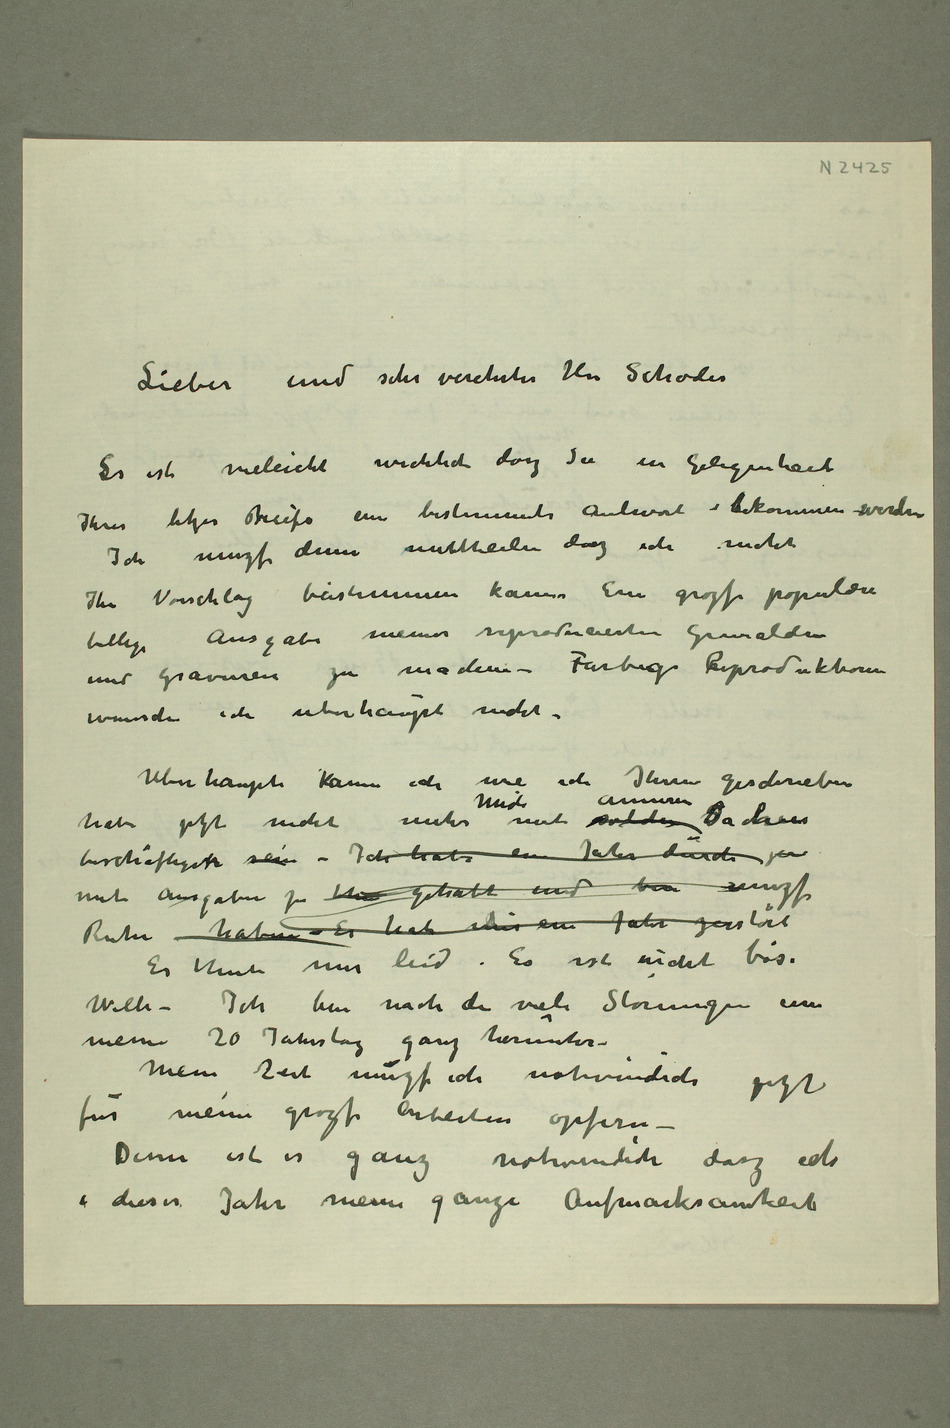 N 2425
Lieber und sehr verehrter Herr Schröder
Es ist vieleicht wichtich dasz Sie in Gelegenheit
Ihres letzes Briefs eine bestimmte Antwort bekommen werden
Ich muszf denn mittheilen dasz ich nicht
Ihr Vorschlag beistimmen kann. Eine grozfe populäre
billige Ausgabe meiner reproducierten Gemälden
und Gravuren zu machen – Farbige Reproduktionen
wünsche ich uberhaupt nicht.
Uberhaupt kann ich wie ich Ihnen geschrieben
mich anneren
habe jetzt nicht mit solchen Sachen
beschäftigen sein – Ich habe ein Jahr durch
mit Ausgaben zu thun gehabt und bin muszf
Ruhe haben – Es hat mir ein Jahr zerstört
Es thut mir leid. Es ist nicht böse
Wille – Ich bin nach die viele Störungen um
meine 70 Jahrstag ganz herunter –
Meine Zeit muszf ich nothwendich jetzt
für meine grozfe Arbeiten opfern –
Denn ist es ganz nothwendich dasz ich
i dieser Jahr meine ganze Aufmarksamkeit